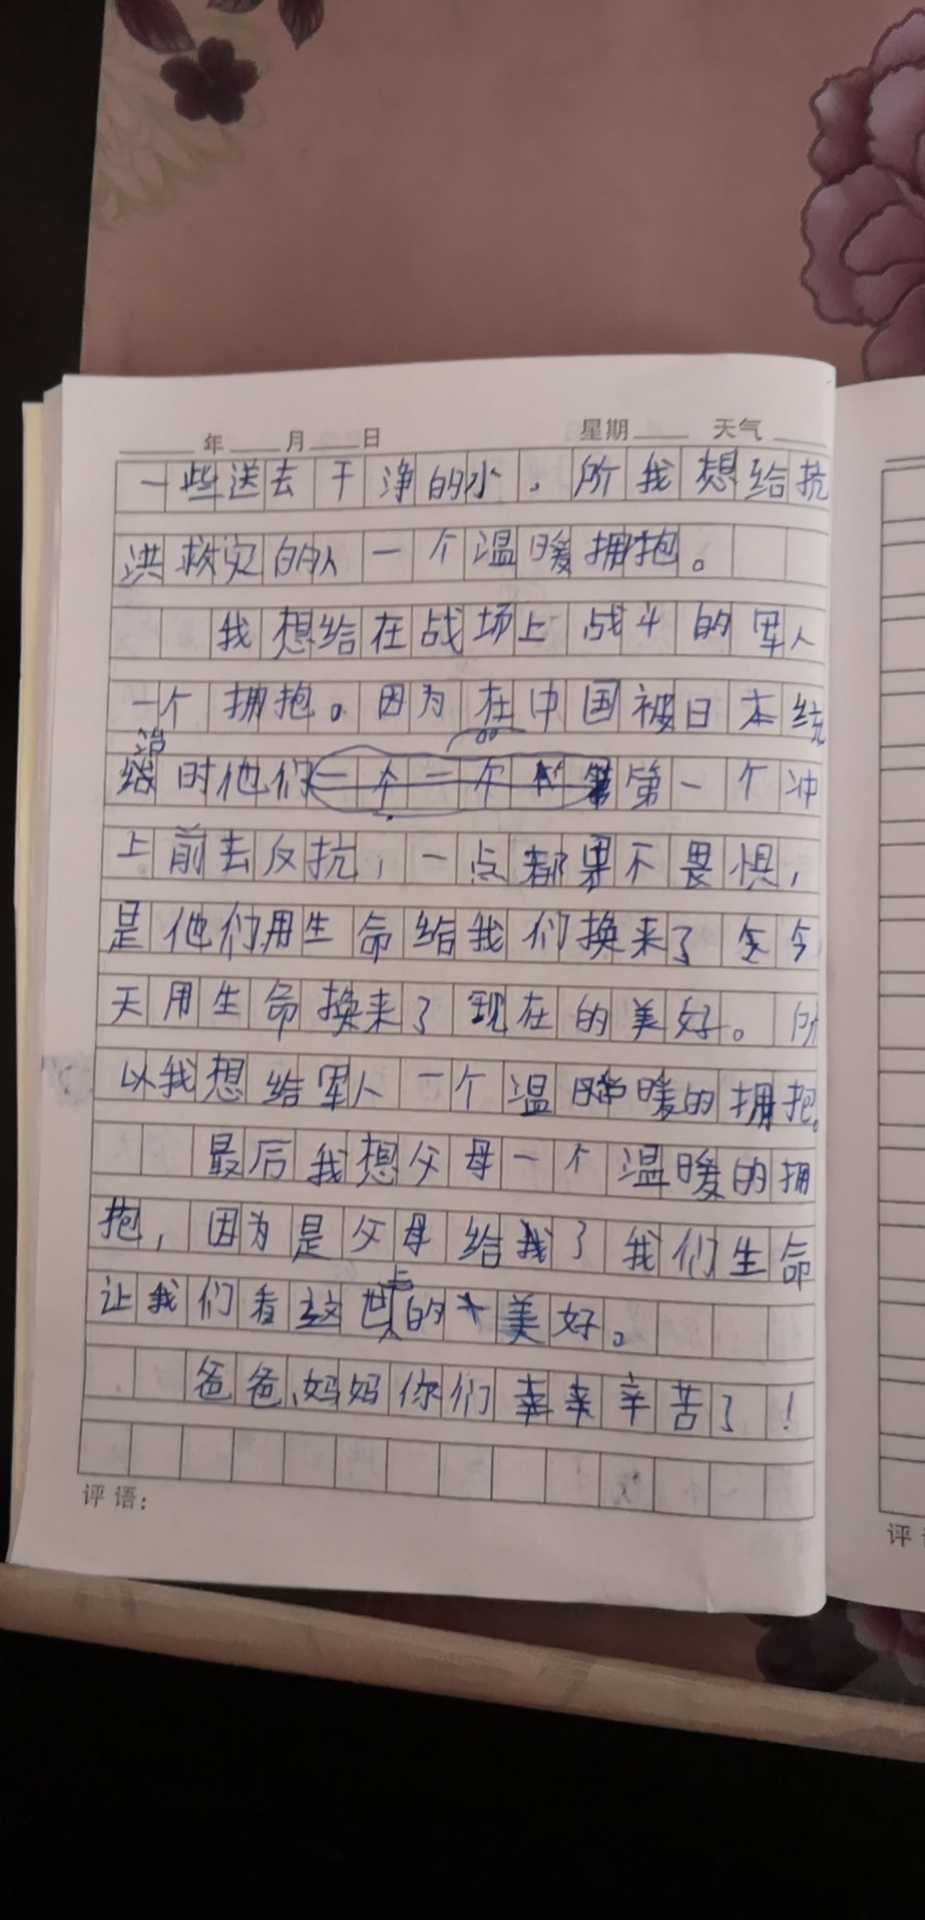 年 月 日 星期 天气
一些送去干净的水。所我想给抗
洪救灾的人一个温暖拥抱。
我想给在战场上战斗的军人
一个拥抱。因为在中国被日本统
治时他们第一个冲
上前去反抗，一点都不畏惧，
是他们用生命给我们换来了今
天用生命换来了现在的美好。所
以我想给军人一个温暖的拥抱。
最后我想父母一个温暖的拥
抱，因为是父母给了我们生命
让我们看这世上的美好。
爸爸、妈妈你们辛苦了！
评语：
评